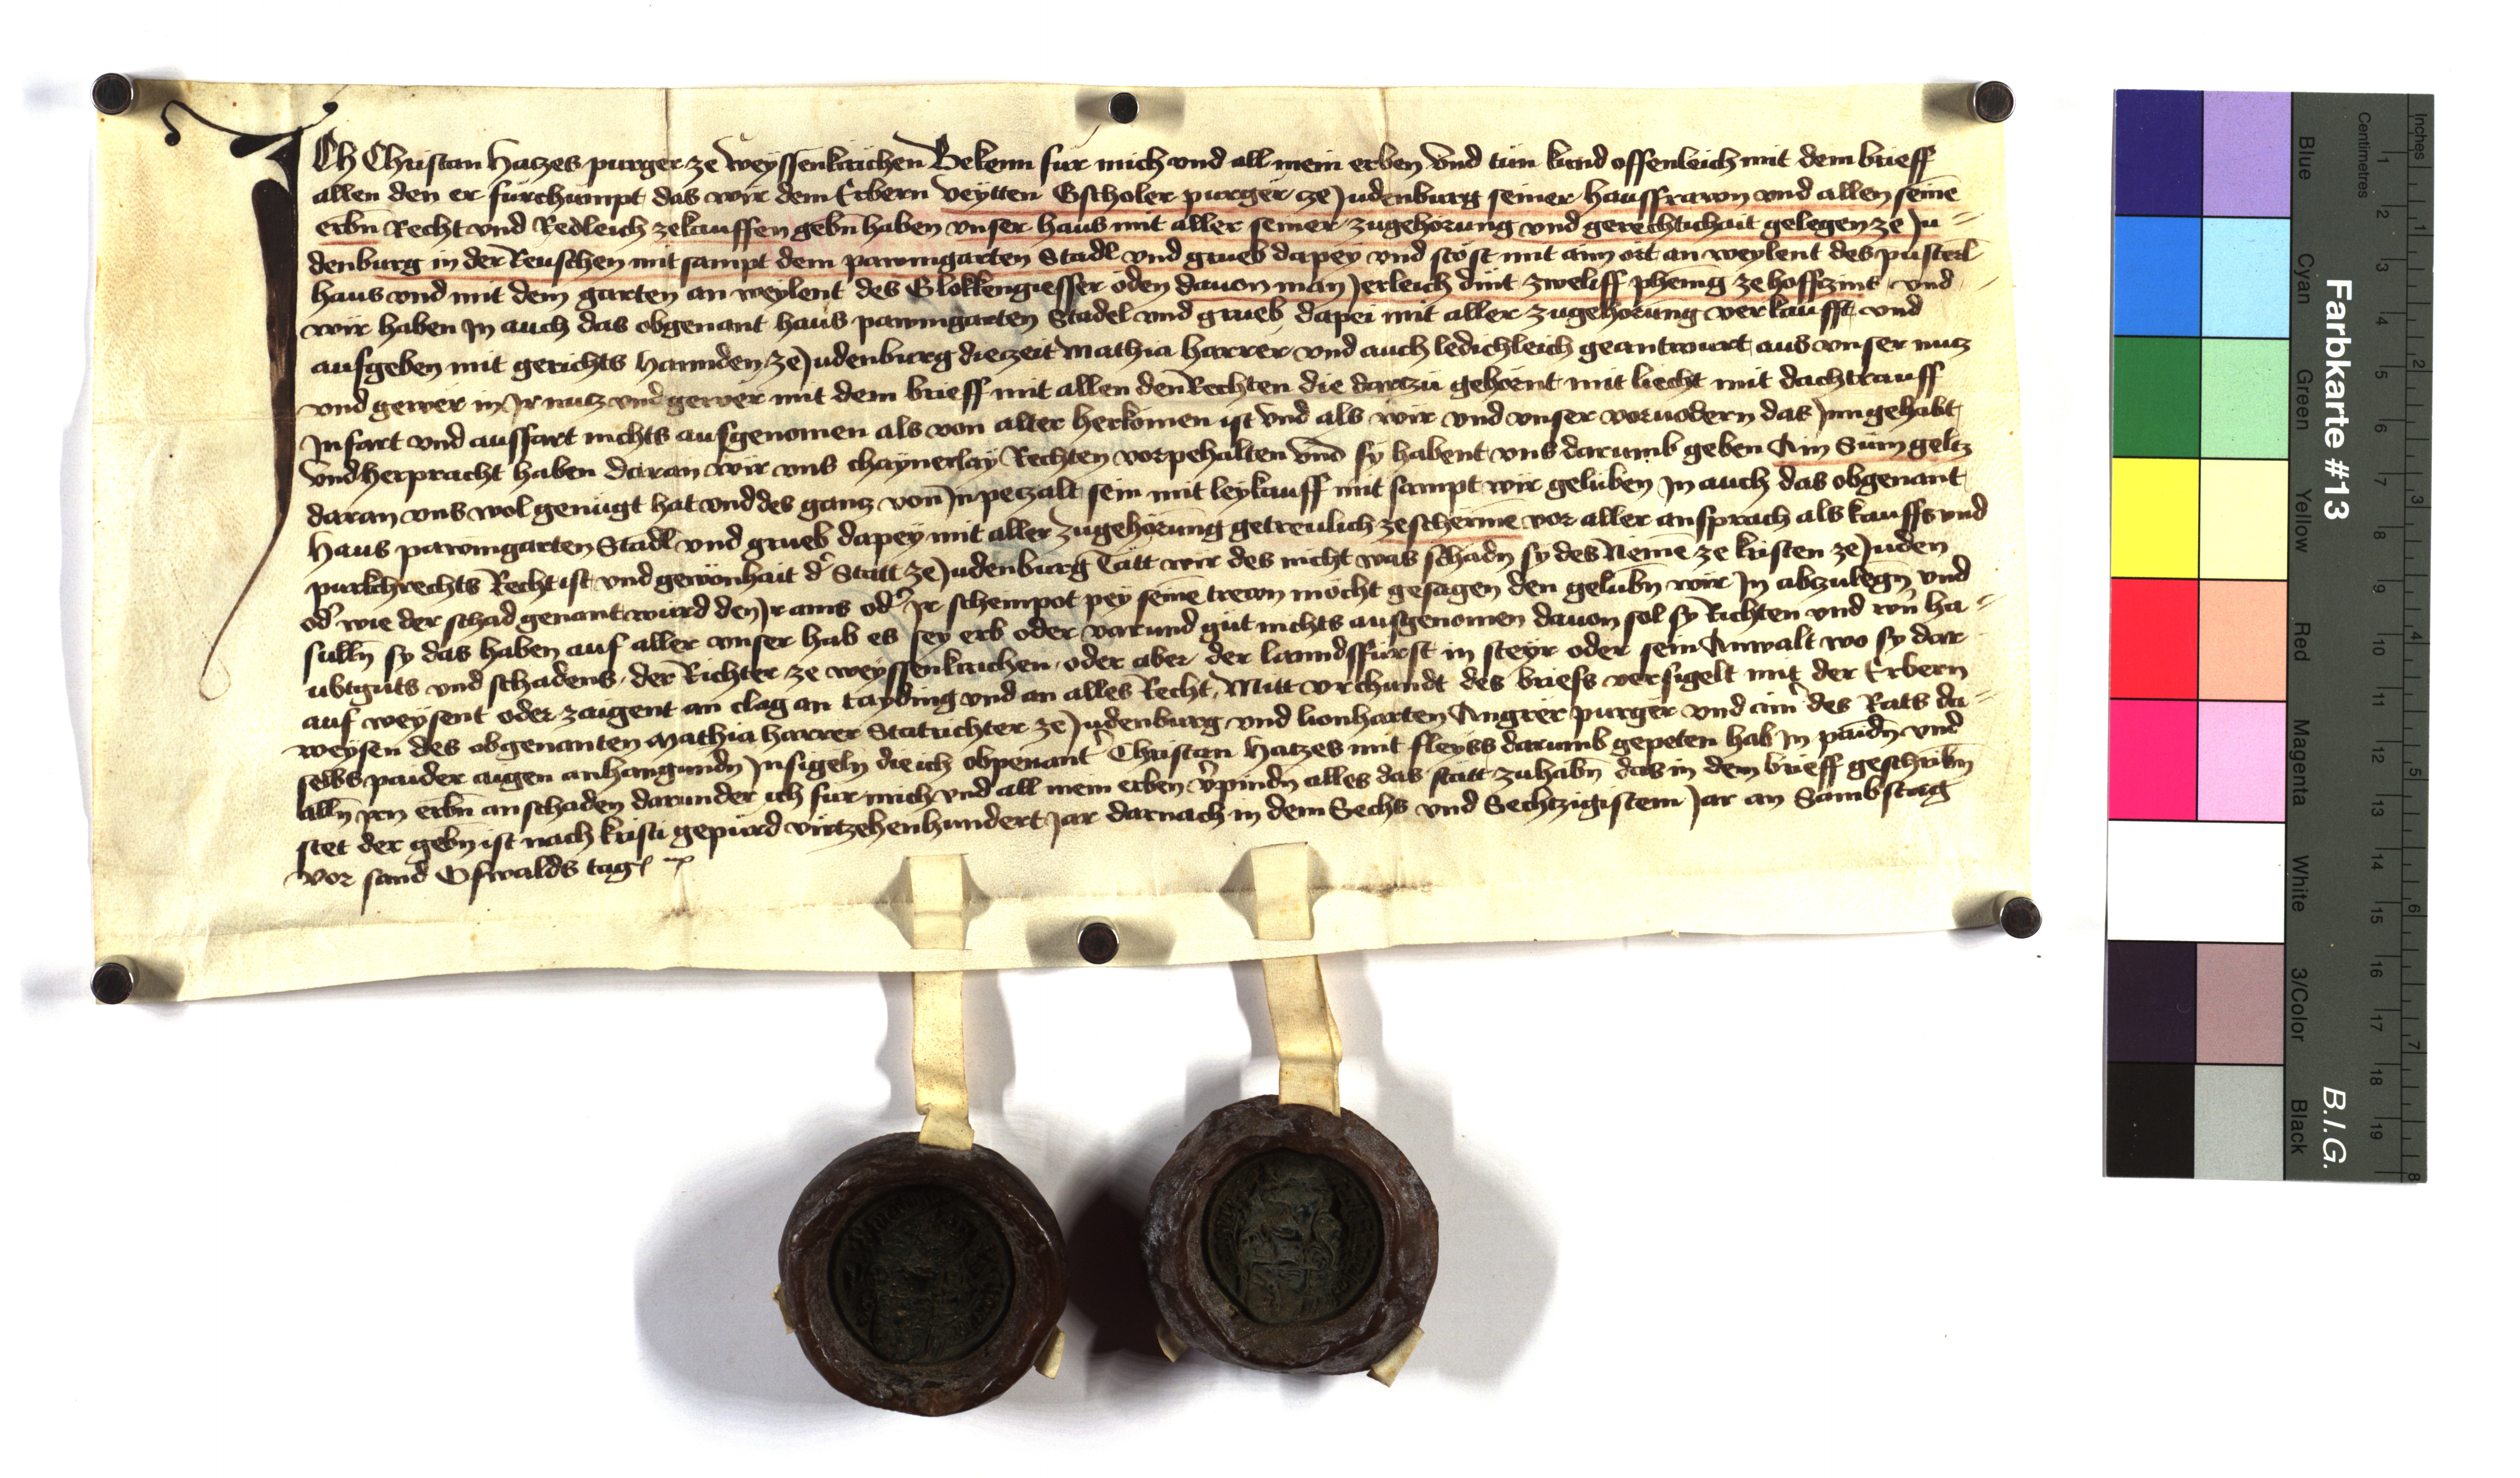 Ich Christan Hatzes purger ze weyssenkirichen Bekenn fur mich und all mein erben Und tun kund offenleich mit dem brieff
allen den er furchumpt das wir dem Erbern veytten Gscholer purger ze Judenburg seiner hausfrawn und allen seine
erbn Recht und Redleich zekauffen gebn haben unser haus mit aller seiner zugehorung und gerechtichait gelegen ze Ju=
denburg in der Reuschen mit sampt dem pawmgarten Stadl und grueb dapey und stost mit aim ort an weylent des pusterl
haus und mit dem garten an weylent des Glokkengiesser oden davon man Jerleich dint zweliff phenig ze hoffzins und
wir haben Jn auch das obgenant haus pawmgarten Stadel und grueb dapei mit aller zugehorung verkaufft und
aufgeben mit gerichts hannden ze Judenburg die zeit Mathia harrer und auch ledichleich geantwurt aus unser nutz
und gewer in Jr nutz und gewer mit dem brieff mit allen den Rechten die dartzu gehornt mit liecht mit dachtrauff
Jnfart und ausfart nichts ausgenomen als von alter herkomen ist Und als wir und unser vorvodern das Jnngehabt
Und herpracht haben daran wir uns chaynerlay Rechten vorpehalten Und sy habent uns darumb geben Ain Sum geltz
daran uns wol genugt hat und des gantz von Jn petzalt sein mit leykauff mit sampt wir geluben Jn auch das obgenant
Haus pawmgarten Stadl und grueb dapey mit aller zugehorung getreulich zescherme vor aller ansprach als kauffs und
purkchrechts Recht ist und gewonhait dr Statt ze Judenburg Tatt wir des nicht was schadn sy des Neme ze kristen ze Juden
odr wie der schad genant wurd den Jr ains odr Jr schempot pey seine trewn mocht gesagen den gelubn wir Jn abzulegn und
sulln sy das haben auf aller unser hab es sey erb oder varund gut nichts ausgenomen davon sol sy Richten und wrn ha=
ubtguts und schadens der Richter ze weyssenkirichen oder aber der lanndsfurst in steyr oder sein Anwalt wo sy dar
auf weysent oder zaigent an clag an tayding und an alles Recht, Mitt urchundt des briefs versigelt mit der Erbern
weysen des obgenanten Mathia harrer Statrichter ze Judenburg und lionharten Angrer purger und aim des Rats da=
selbs paider aigen anhangundn Jnsigeln die ich obgenant Christan Hatzes mit fleyss darumb gepeten hab Jn paidn und
alln Jrn erbn an schaden darunder ich fur mich und all mein erben vrpindn alles das statt zuhabn das in dem brieff geschribn
stet der gebn ist nach kristi gepurd virtzehenhundert Jar darnach in dem Sechs und Sechtzigistem Jar an Sambstag
vor sand Oswalds tag
Farbkarte #13
B.I.G.
Centimetres
Inches
Blue
Cyan
Green
Yellow
Red
Magenta
White
3/Color
Black
1 2 3 4 5 6 7 8 9 10 11 12 13 14 15 16 17 18 19
1 2 3 4 5 6 7 8